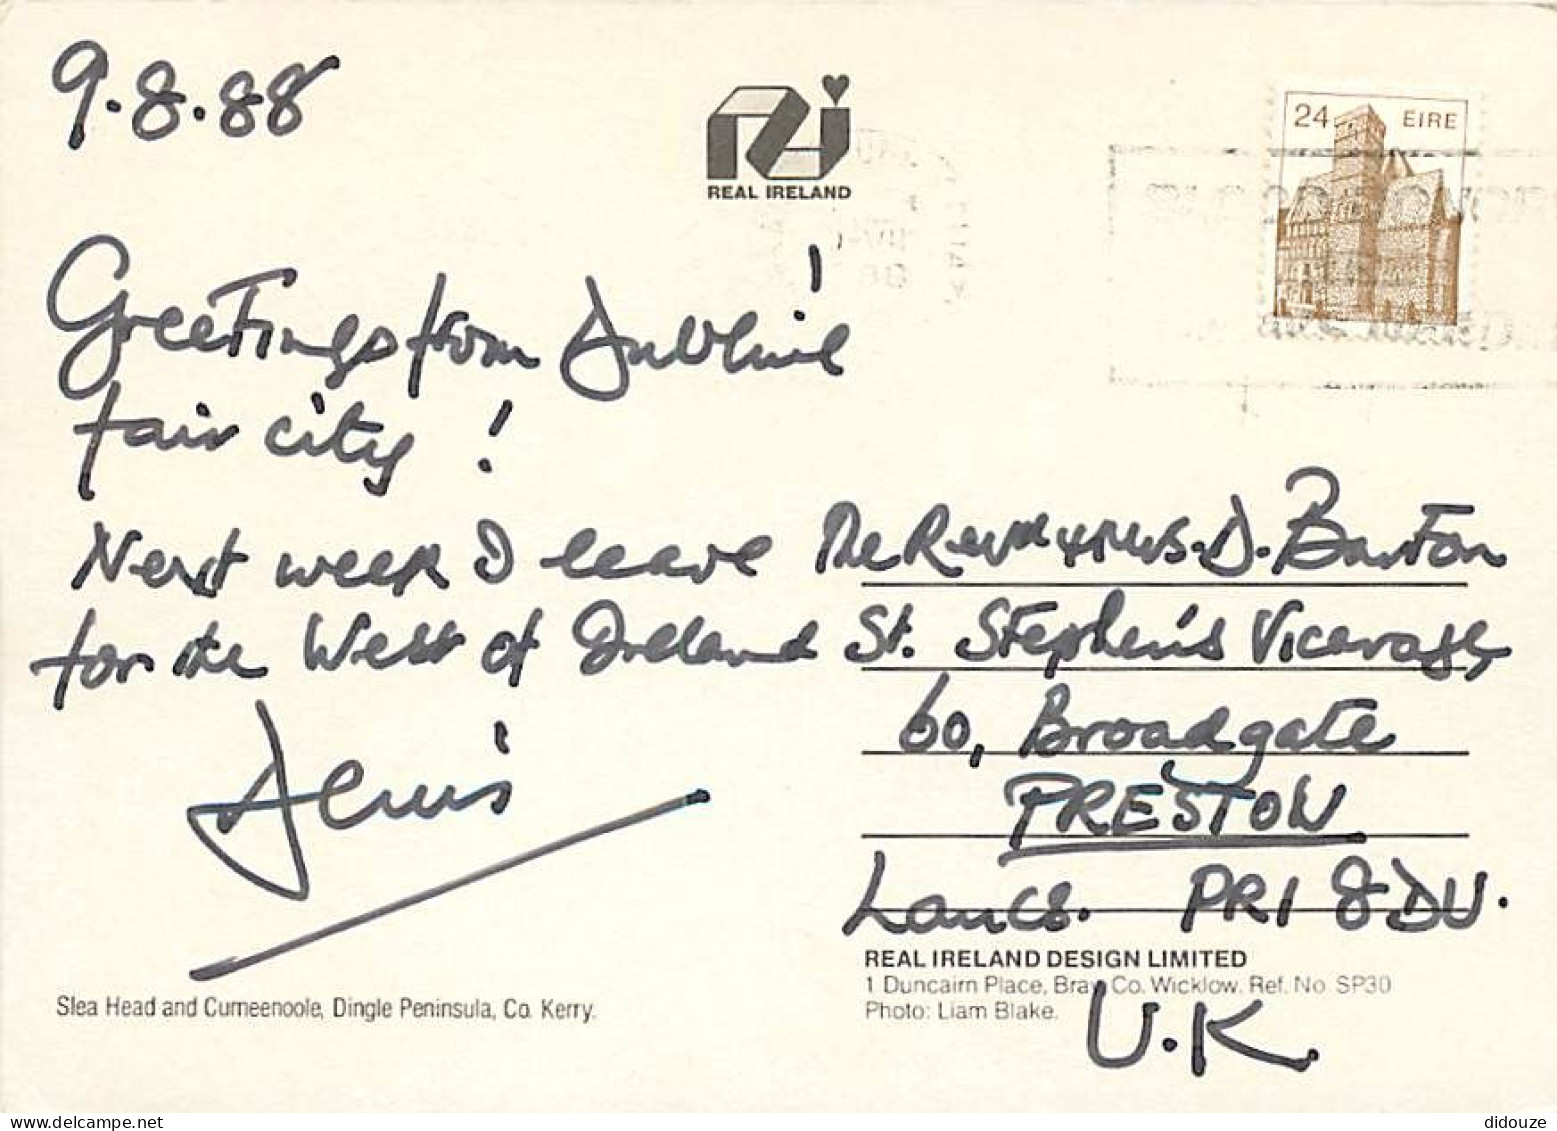 9.8.88
REAL IRELAND
24 EIRE
Greetings from Dublin's
fair city!
Next week I leave
for the West of Ireland
Denis
The Revd & Mrs. D. Burton
St. Stephen's Vicarage,
60, Broadgate
PRESTON
Lancs. PR1 8DU.
U.K.
Slea Head and Cumeenoole, Dingle Peninsula, Co. Kerry.
REAL IRELAND DESIGN LIMITED
1 Duncairn Place, Bray, Co. Wicklow. Ref. No SP30
Photo: Liam Blake.
didouze